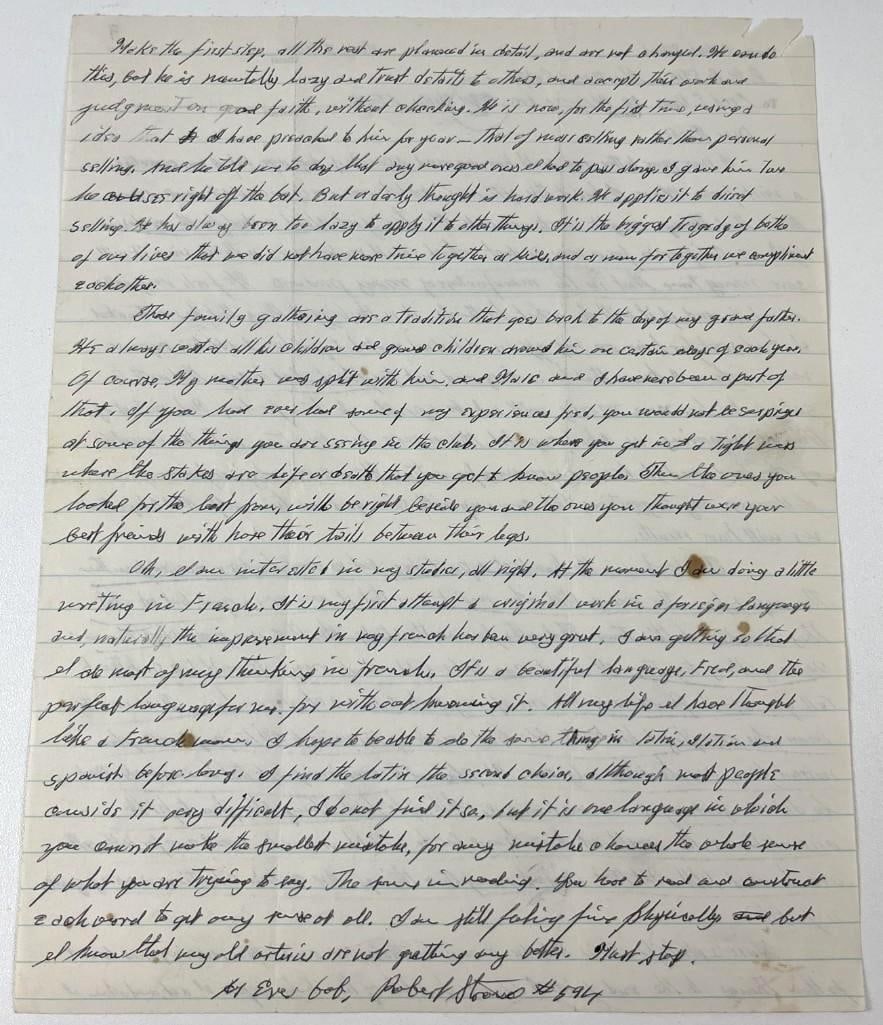 Make the first step, all the rest are planned in detail, and are not changed. He can do
this, but he is mentally lazy and trust details to others, and accepts their work and
judgment on good faith, without checking. He is now, for the first time, using a
idea that I have preached to him for year— that of mass selling rather than personal
selling. And he told me to day that any more good ones I had to pass along. I gave him two
he uses right off the bat. But orderly thought is hard work. He applies it to direct
selling. He has always been too lazy to apply it to other things. It is the biggest tragedy of both
of our lives that we did not have more time together as kids, and as men for together we compliment
each other.
These family gathering are a tradition that goes back to the day of my grand father.
He always wanted all his children and grand children around him on certain days of each year.
Of course, My mother was split with him, and Marc and I have never been a part of
that. If you had ever had some of my experiences fred, you would not be surprised
at some of the things you are seeing in the club. It is where you get in a tight
where the stakes are life or death that you get to know people. Then the ones you
looked for the least from, will be right beside you and the ones you thought were your
best friends with have their tails between their legs.
Oh, I am interested in my studies, all right. At the moment I am doing a little
writing in French. It is my first attempt a original work in a foreign language
and, naturally, the improvement in my french has been very great. I am getting so that
I do most of my thinking in french. It is a beautiful language, Fred, and the
perfect language for me. for with out knowing it. All my life I have thought
like a Frenchman. I hope to be able to do the same thing in latin, Italian and
spanish before long. I find the latin the second choice, although most people
consider it very difficult, I do not find it so, but it is one language in which
you cannot make the smallest mistake, for any mistake changes the whole sense
of what you are trying to say. The same in reading. You have to read and construct
each word to get any sense at all. I am still feeling fine physically but
I know that my old arteries are not getting any better. Must stop.
As Ever bob, Robert Stroud #594